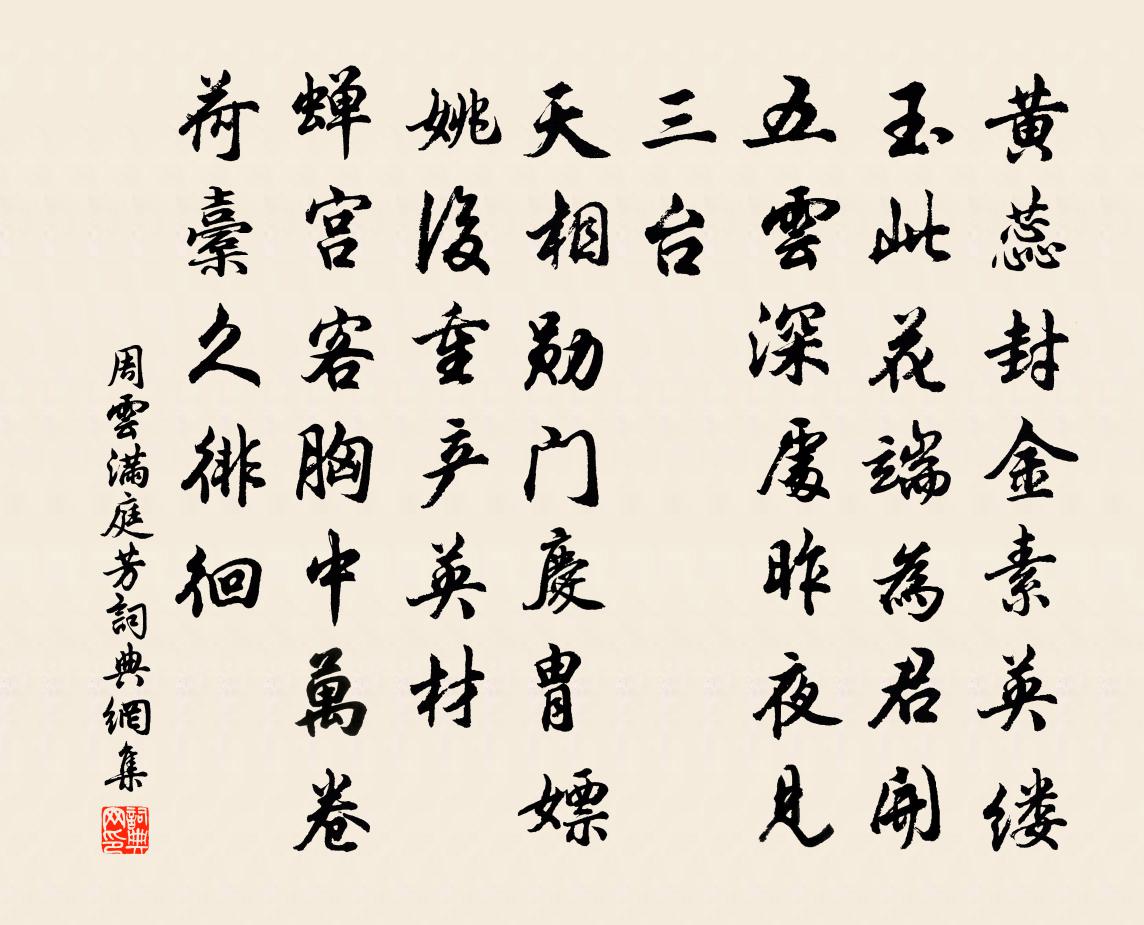 黄蕊封金素英缕
玉此花端為君開
五雲深處昨夜見
三台
天相勋门慶胄嫖
姚後重产英材
蝉宫客胸中萬卷
荷橐久徘徊
周雲满庭芳詞典網集
詞典
网印